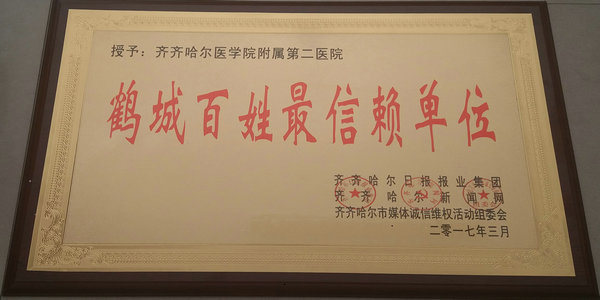 授予：齐齐哈尔医学院附属第二医院
鹤城百姓最信赖单位
齐齐哈尔日报报业集团
齐齐哈尔新闻网
齐齐哈尔市媒体诚信维权活动组委会
二〇一七年三月